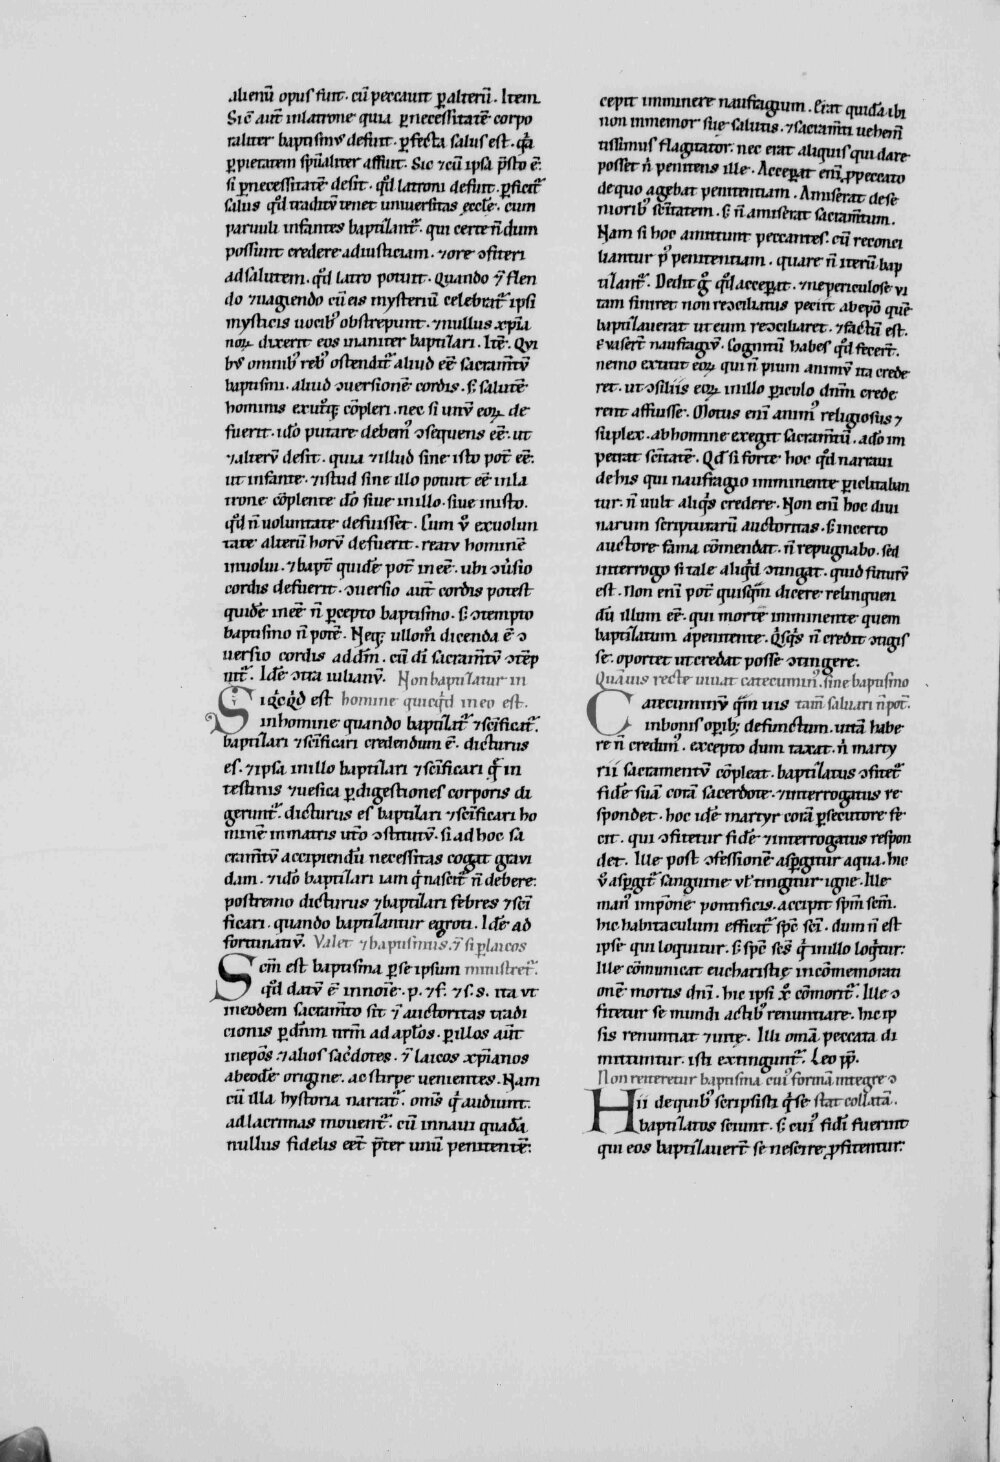 alienū opus sunt. cū peccauit ꝑ alterū. Item.
Sic̄ aut̄ in latrone quia ꝑ necessitatē corpo
raliter baptismꝰ defuit. ꝑfecta salus est. qꝛ̄a
ꝑ pietatem spūaliter affuit. Sic ⁊ cū ipsa p̄sto ē.
si ꝑ necessitatē desit. qd̄ latroni defuit. ꝑficit᷑
salus qd̄ traditū tenet uniuersitas ecclę. cum
paruuli infantes baptizant᷑. qui certe n̄dum
possunt credere ad iusticiam. ⁊ ore ↄfiteri
ad salutem. qd̄ latro potuit. Quando ⁊̄ flen
do ⁊ uagiendo cū eis mysteriū celebrat᷑ ipsi
mysticis uocibꝰ obstrepunt. ⁊ nullus xp̄ia
noꝝ dixerit eos inaniter baptizari. Itē. Qui
bꝰ omnibꝰ rebꝰ ostendit᷑ aliud eē sacram̄tū
baptismi. aliud ↄuersionē cordis. s; salutē
hominis ex utroq; cōpleri. nec si unū eoꝝ de
fuerit. ido̅ putare debemꝰ ↄsequens eē. ut
⁊ alterū desit. quia ⁊ illud sine isto pot̄ eē.
ut infante. ⁊ istud sine illo potuit eē in la
trone cōplente dō siue in illo. siue in isto.
qd̄ n̄ uoluntate defuisset. Cum ů ex uolun
tate alterū horū defuerit. reatu hominē
inuolui. ⁊ bapt̄ quidē pot̄ inēē. ubi ↄu̅sio
cordis defuerit. ↄuersio aut̄ cordis potest
quidē ineē n̄ ꝑcepto baptismo. s; ↄtempto
baptismo n̄ potē. Neq; ullom̊ dicenda ē ↄ
uersio cordis ad dm̄. cū dī sacram̄tū ↄtēp
nit᷑. Idē ↄtra iulianū. Non baptizatur in
Siqͥcqͥd est homine quicqͥd in eo est.
in homine quando baptizat᷑ ⁊ sc̄ificat᷑.
baptizari ⁊ sc̄ificari credendum ē. dicturus
es. ⁊ ipsa in illo baptizari ⁊ sc̄ificari qͥ in
testinis ⁊ uesica ꝑ digestiones corporis di
gerunt᷑. dicturus es baptizari ⁊ sc̄ificari ho
minē in matris utō ↄstitutū. si ad hoc sa
cram̄tū accipiendū necessitas cogat graui
dam. ⁊ ido̅ baptizari iam qͥ nascit᷑ n̄ debere.
postremo dicturus ⁊ baptizari febres ⁊ sc̄i
ficari. quando baptizantur egroti. Idē ad
fortunatū. Valet ⁊ baptismus. ⁊̄ si ꝑ laicos
Sc̄m est baptisma ꝑ se ipsum ministret᷑.
qd̄ datū ē in noīe. p. ⁊ f. ⁊ s. s. ita ut
in eodem sacram̄to sit ⁊̄ auctoritas tradi
cionis ꝑ dn̄m nr̄m ad apl̄os. ꝑ illos aūt
in epōs ⁊ alios sac̄dotes. ⁊̄ laicos xp̄ianos
ab eodē origine. ac stirpe uenientes. Nam
cū illa hystoria narrat᷑. oms̄ qͥ audiunt.
ad lacrimas mouent᷑. cū in naui quadā
nullus fidelis eēt p̄ter unū penitentē.
cepit imminere naufragium. Erat quidā ibi
non inmemor suę salutis. ⁊ sacram̄ti uehem̄
tissimus flagitator. nec erat aliquis qui dare
posset n̄ penitens ille. Acceperat eni̅ ꝓ peccato
de quo agebat penitentiam. Amiserat de se
nioribꝰ sc̄itatem. s; n̄ amiserat sacram̄tum.
Nam si hoc amittunt peccantes. cū reconci
liantur p̄ penitentiam. quare n̄ iterū bap
tizant᷑. Dedit g̊ qd̄ acceperat. ⁊ ne periculose ui
tam finiret non reↄciliatus petiit ab epō quē
baptizauerat ut eum reↄciliaret. ⁊ factū est.
Euaser̄t naufragiū. Cognitū habes qd̄ fecer̄t.
nemo extitit eoꝝ qui n̄ pium animū ita crede
ret. ut ↄsiliis eoꝝ in illo periculo dnm̄ crede
rent affuisse. Motus eni̅ animꝰ religiosus ⁊
suplex. ab homine exegit sacram̄tū. a dō im
petrat sc̄itatē. Qd̄ si forte hoc qd̄ narraui
de his qui naufragio imminente ꝑiclitaban
tur. n̄ uult aliqͥs credere. Non eni̅ hoc diui
narum scripturarū auctoritas. s; incerto
auctore fama cōmendat. n̄ repugnabo. sed
interrogo si tale aliqͥd ↄtingat. quid futurū
est. Non eni̅ pot̄ quisqm̄ dicere relinquen
dū illum eē. qui morte imminente quem
baptizatum a penitente. Qͥsqͥs n̄ credit ↄtigis
se. oportet ut credat posse ↄtingere.
Quāuis recte uiuat catecuminꝰ. sine baptismo
Catecuminū qm̄uis tam̄ saluari n̄ pot̄.
in bonis opib; defunctum. uitā habe
re n̄ credimꝰ. excepto dum taxat. n̄ marty
rii sacramentū cōpleat. baptizatus ↄfitet᷑
fidē suā corā sacerdote. ⁊ interrogatus re
spondet. hoc idē martyr corā ꝑsecutore fe
cit. qui ↄfitetur fidē ⁊ interrogatus respon
det. Ille post ↄfessionē asꝑgitur aqua. hic
ů asꝑgit᷑ sanguine ul̄ tingitur igne. Ille
manꝰ impōne pontificis. accipit spm̄ sc̄m.
hic habitaculum efficit᷑ spc̄ sc̄i. dum n̄ est
ipse qui loquitur. s; spc̄ scs̄ qͥ in illo loqͥtur.
Ille cōmunicat eucharistię in cōmemorati
onē mortis dn̄i. hic ipsi xp̊ cōmorit᷑. Ille ↄ
fitetur se mundi actibꝰ renuntiare. hic ip
sis renuntiat ⁊ uitę. Illi om̄a peccata di
mittuntur. isti extingunt᷑. Leo pp̄.
Non reiteretur baptisma cuiꝰ formā integre ↄ
Hii de quibꝰ scripsisti qͥ se stat collatā.
baptizatos sciunt. s; cuiꝰ fidei fuerint
qui eos baptizauer̄t se nescire ꝓfitentur.